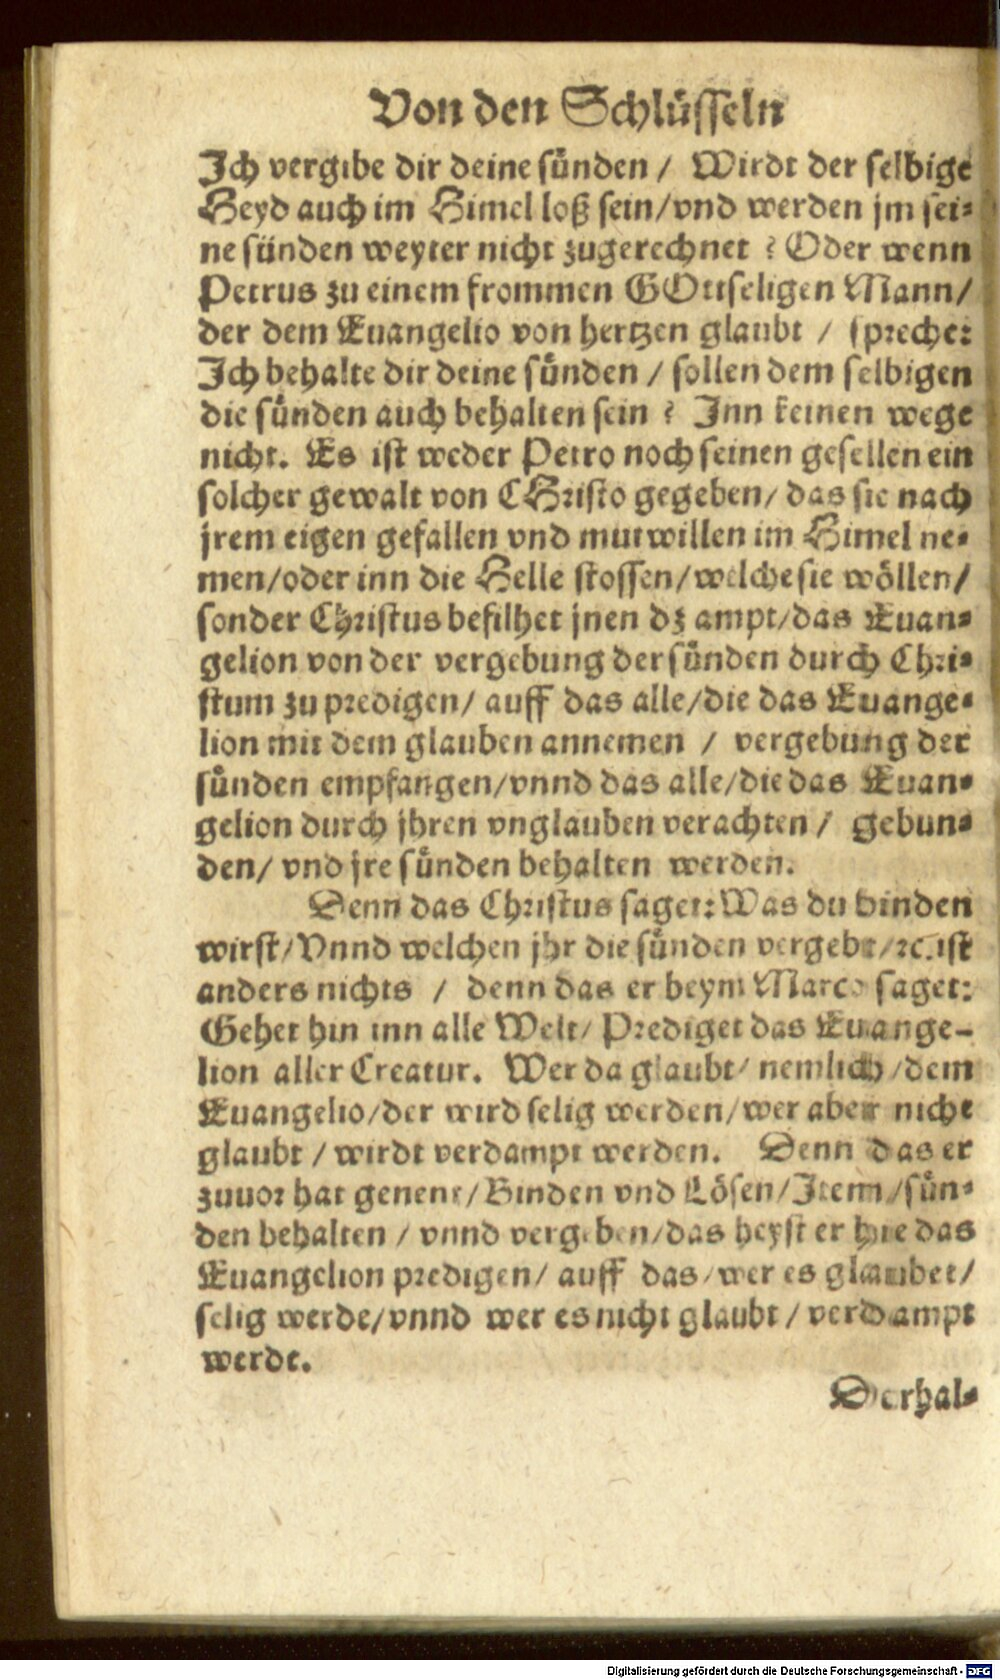 Von den Schlüsseln
Ich vergibe dir deine sünden / Wirdt der selbige
Heyd auch im Himel loß sein/vnd werden jm sei⸗
ne sünden weyter nicht zugerechnet ? Oder wenn
Petrus zu einem frommen GOttseligen Mann/
der dem Euangelio von hertzen glaubt / spreche:
Ich behalte dir deine sünden / sollen dem selbigen
die sünden auch behalten sein ? Inn keinen wege
nicht. Es ist weder Petro noch seinen gesellen ein
solcher gewalt von CHristo gegeben/ das sie nach
jrem eigen gefallen vnd mutwillen im Himel ne⸗
men/oder inn die Helle stossen/welche sie wöllen/
sonder Christus befilhet jnen dz ampt/das Euan⸗
gelion von der vergebung der sünden durch Chri⸗
stum zu predigen/ auff das alle/die das Euange⸗
lion mit dem glauben annemen / vergebung der
sünden empfangen/vnnd das alle/die das Euan⸗
gelion durch jhren vnglauben verachten / gebun⸗
den/ vnd jre sünden behalten werden.
Denn das Christus saget: Was du binden
wirst/Vnnd welchen jhr die sünden vergebt/ꝛc. ist
anders nichts / denn das er beym Marco saget:
Gehet hin inn alle Welt/ Prediget das Euange-
lion aller Creatur. Wer da glaubt/ nemlich /dem
Euangelio/der wird selig werden/wer aber nicht
glaubt / wirdt verdampt werden. Denn das er
zuuor hat genent/Binden vnd Lösen/Item/sün⸗
den behalten / vnnd vergeben/das heyst er hie das
Euangelion predigen/ auff das/wer es glaubet/
selig werde/vnnd wer es nicht glaubt / verdampt
werde.
Derhal⸗
Digitalisierung gefördert durch die Deutsche Forschungsgemeinschaft - DFG